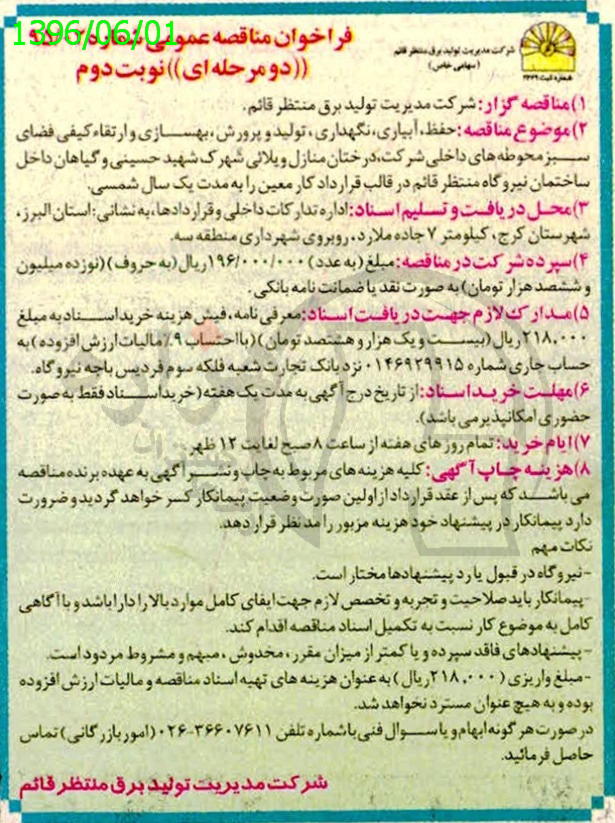 1396/06/01
فراخوان مناقصه عمومی شماره
شرکت مدیریت تولید برق منتظر قائم
(سهامی خاص)
((دو مرحله ای)) نوبت دوم
شماره ثبت
۱)مناقصه گزار: شرکت مدیریت تولید برق منتظر قائم.
۲)موضوع مناقصه: حفظ، آبیاری، نگهداری، تولید و پرورش، بهسازی و ارتقاء کیفی فضای
سبز محوطه های داخلی شرکت، درختان منازل ویلائی شهرک شهید حسینی و گیاهان داخل
ساختمان نیروگاه منتظر قائم در قالب قرارداد کار معین را به مدت یک سال شمسی.
۳)محل دریافت و تسلیم اسناد: اداره تدارکات داخلی و قراردادها، به نشانی: استان البرز،
شهرستان کرج، کیلومتر ۷ جاده ملارد، روبروی شهرداری منطقه سه.
۴)سپرده شرکت در مناقصه: مبلغ (به عدد) ۱۹۶/۰۰۰/۰۰۰ریال (به حروف) (نوزده میلیون
و ششصد هزار تومان) به صورت نقد یا ضمانت نامه بانکی.
۵)مدارک لازم جهت دریافت اسناد: معرفی نامه، فیش هزینه خرید اسناد به مبلغ
۲۱۸,۰۰۰ریال (بیست و یک هزار و هشتصد تومان) (با احتساب ۹٪ مالیات ارزش افزوده) به
حساب جاری شماره ۰۱۴۶۹۲۹۹۱۵ نزد بانک تجارت شعبه فلکه سوم فردیس باجه نیروگاه.
۶)مهلت خرید اسناد: از تاریخ درج آگهی به مدت یک هفته (خرید اسناد فقط به صورت
حضوری امکانپذیر می باشد).
۷)ایام خرید: تمام روزهای هفته از ساعت ۸ صبح لغایت ۱۲ ظهر.
۸)هزینه چاپ آگهی: کلیه هزینه های مربوط به چاپ و نشر آگهی به عهده برنده مناقصه
می باشد که پس از عقد قرارداد از اولین صورت وضعیت پیمانکار کسر خواهد گردید و ضرورت
دارد پیمانکار در پیشنهاد خود هزینه مزبور را مد نظر قرار دهد.
نکات مهم
-نیروگاه در قبول یا رد پیشنهادها مختار است.
-پیمانکار باید صلاحیت و تجربه و تخصص لازم جهت ایفای کامل موارد بالا را دارا باشد و با آگاهی
کامل به موضوع کار نسبت به تکمیل اسناد مناقصه اقدام کند.
-پیشنهادهای فاقد سپرده و یا کمتر از میزان مقرر، مخدوش، مبهم و مشروط مردود است.
-مبلغ واریزی (۲۱۸,۰۰۰ریال) به عنوان هزینه های تهیه اسناد مناقصه و مالیات ارزش افزوده
بوده و به هیچ عنوان مسترد نخواهد شد.
در صورت هر گونه ابهام و یا سوال فنی با شماره تلفن ۳۶۶۰۷۶۱۱-۰۲۶ (امور بازرگانی) تماس
حاصل فرمائید.
شرکت مدیریت تولید برق منتظر قائم